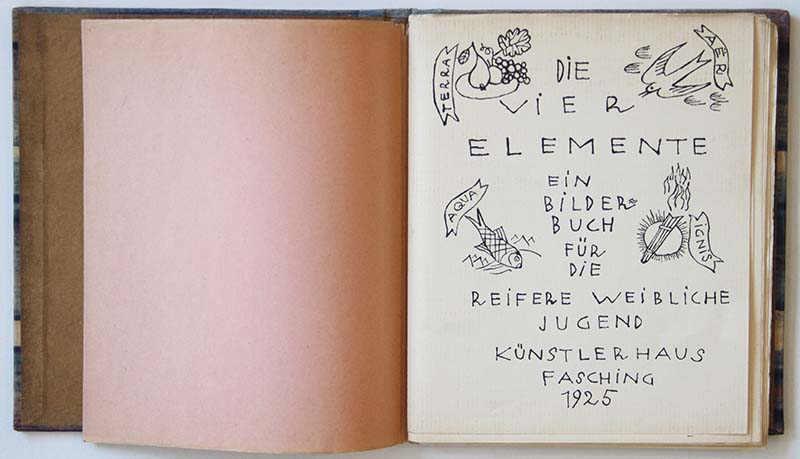 TERRA
DIE
AËR
VIER
ELEMENTE
AQUA
EIN
BILDER=
BUCH
FÜR
DIE
IGNIS
REIFERE WEIBLICHE
JUGEND
KÜNSTLERHAUS
FASCHING
1925